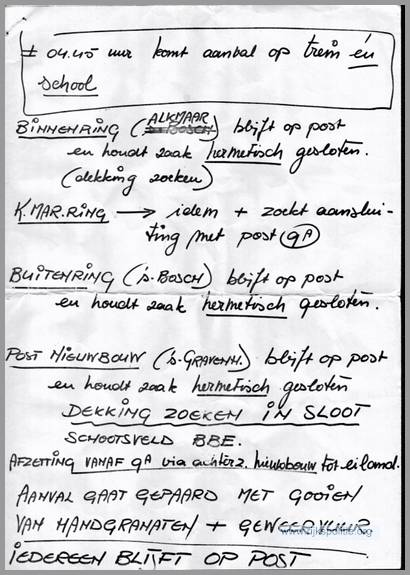 ± 04.45 uur komt aanval op trein én
school
BINNENRING (ALKMAAR) blijft op post
en houdt zaak hermetisch gesloten.
(dekking zoeken)
K.MAR.RING → idem + zoekt aanslui-
ting met post 9A
BUITENRING ('s-BOSCH) blijft op post
en houdt zaak hermetisch gesloten.
POST NIEUWBOUW (s-GRAVENH.) blijft op post
en houdt zaak hermetisch gesloten
DEKKING ZOEKEN IN SLOOT
SCHOOTSVELD BBE.
AFZETTING VANAF 9A via achterz. nieuwbouw tot eiland.
AANVAL GAAT GEPAARD MET GOOIEN
VAN HANDGRANATEN + GEWEERVUUR
www.rijkspolitie.org
IEDEREEN BLIJFT OP POST